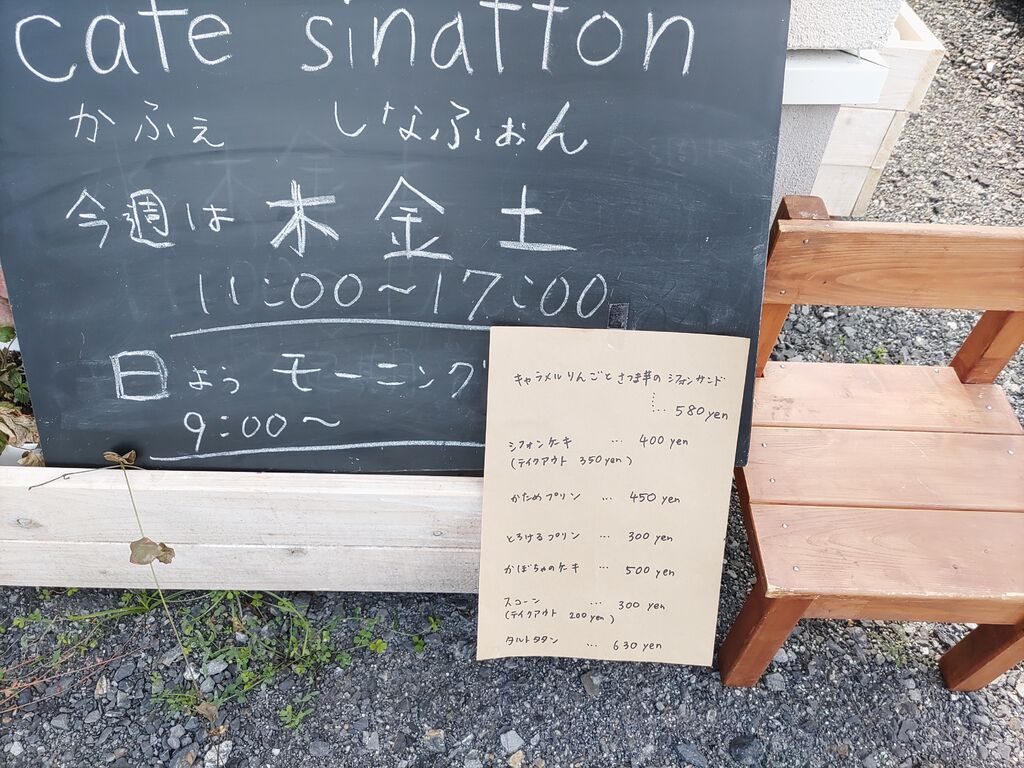 cafe sinaffon
かふぇ しなふぉん
今週は 木 金 土
11:00〜17:00
日よう モーニング
9:00〜
キャラメルりんごとさつま芋のシフォンサンド
… 580yen
シフォンケーキ … 400 yen
(テイクアウト 350yen)
かためプリン … 450 yen
とろけるプリン … 300 yen
かぼちゃのケーキ … 500 yen
スコーン … 300 yen
(テイクアウト 200yen)
タルトタタン … 630 yen